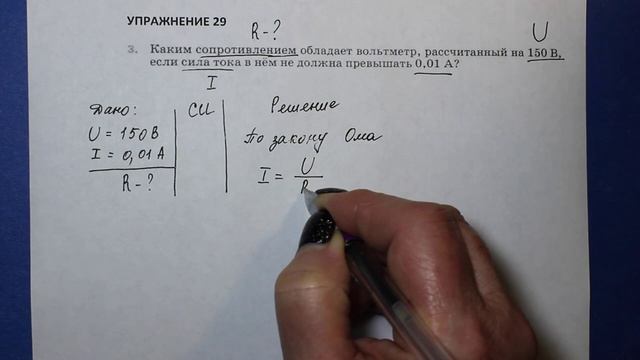 УПРАЖНЕНИЕ 29
R - ?
U
3. Каким сопротивлением обладает вольтметр, рассчитанный на 150 В,
если сила тока в нём не должна превышать 0,01 А?
I
Дано:
U = 150 В
I = 0,01 А
R - ?
СИ
Решение
По закону Ома
I = U
R